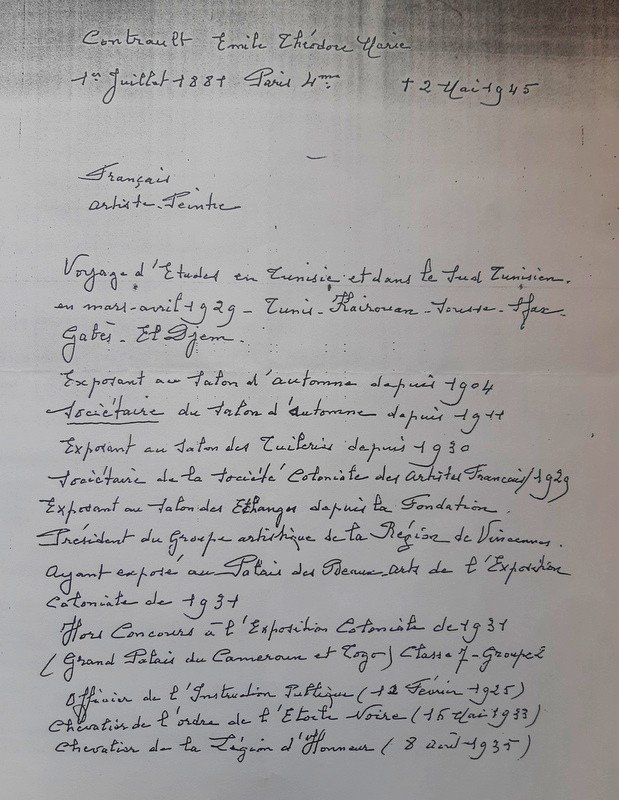 Contrault Emile Théodore Marie
1er Juillet 1881 Paris 4me † 2 Mai 1945
Français
artiste-Peintre
Voyage d'Etudes en Tunisie et dans le Sud Tunisien.
en mars-avril 1929 - Tunis - Kairouan - Sousse - Sfax -
Gabès - El Djem.
Exposant au Salon d'automne depuis 1904
Sociétaire du Salon d'automne depuis 1911
Exposant au Salon des Tuileries depuis 1930
Sociétaire de la Société Coloniale des Artistes Francais / 1929
Exposant au Salon des Echanges depuis la Fondation.
Président du Groupe artistique de la Région de Vincennes.
Ayant exposé au Palais des Beaux-arts de l'Exposition
Coloniale de 1931
Hors Concours à l'Exposition Coloniale de 1931
(Grand Palais du Cameroun et Togo) Classe 7 - Groupe 2
Officier de l'Instruction Publique (12 Février 1925)
Chevalier de l'ordre de l'Etoile Noire (16 Mai 1933)
Chevalier de la Légion d'Honneur (8 août 1935)